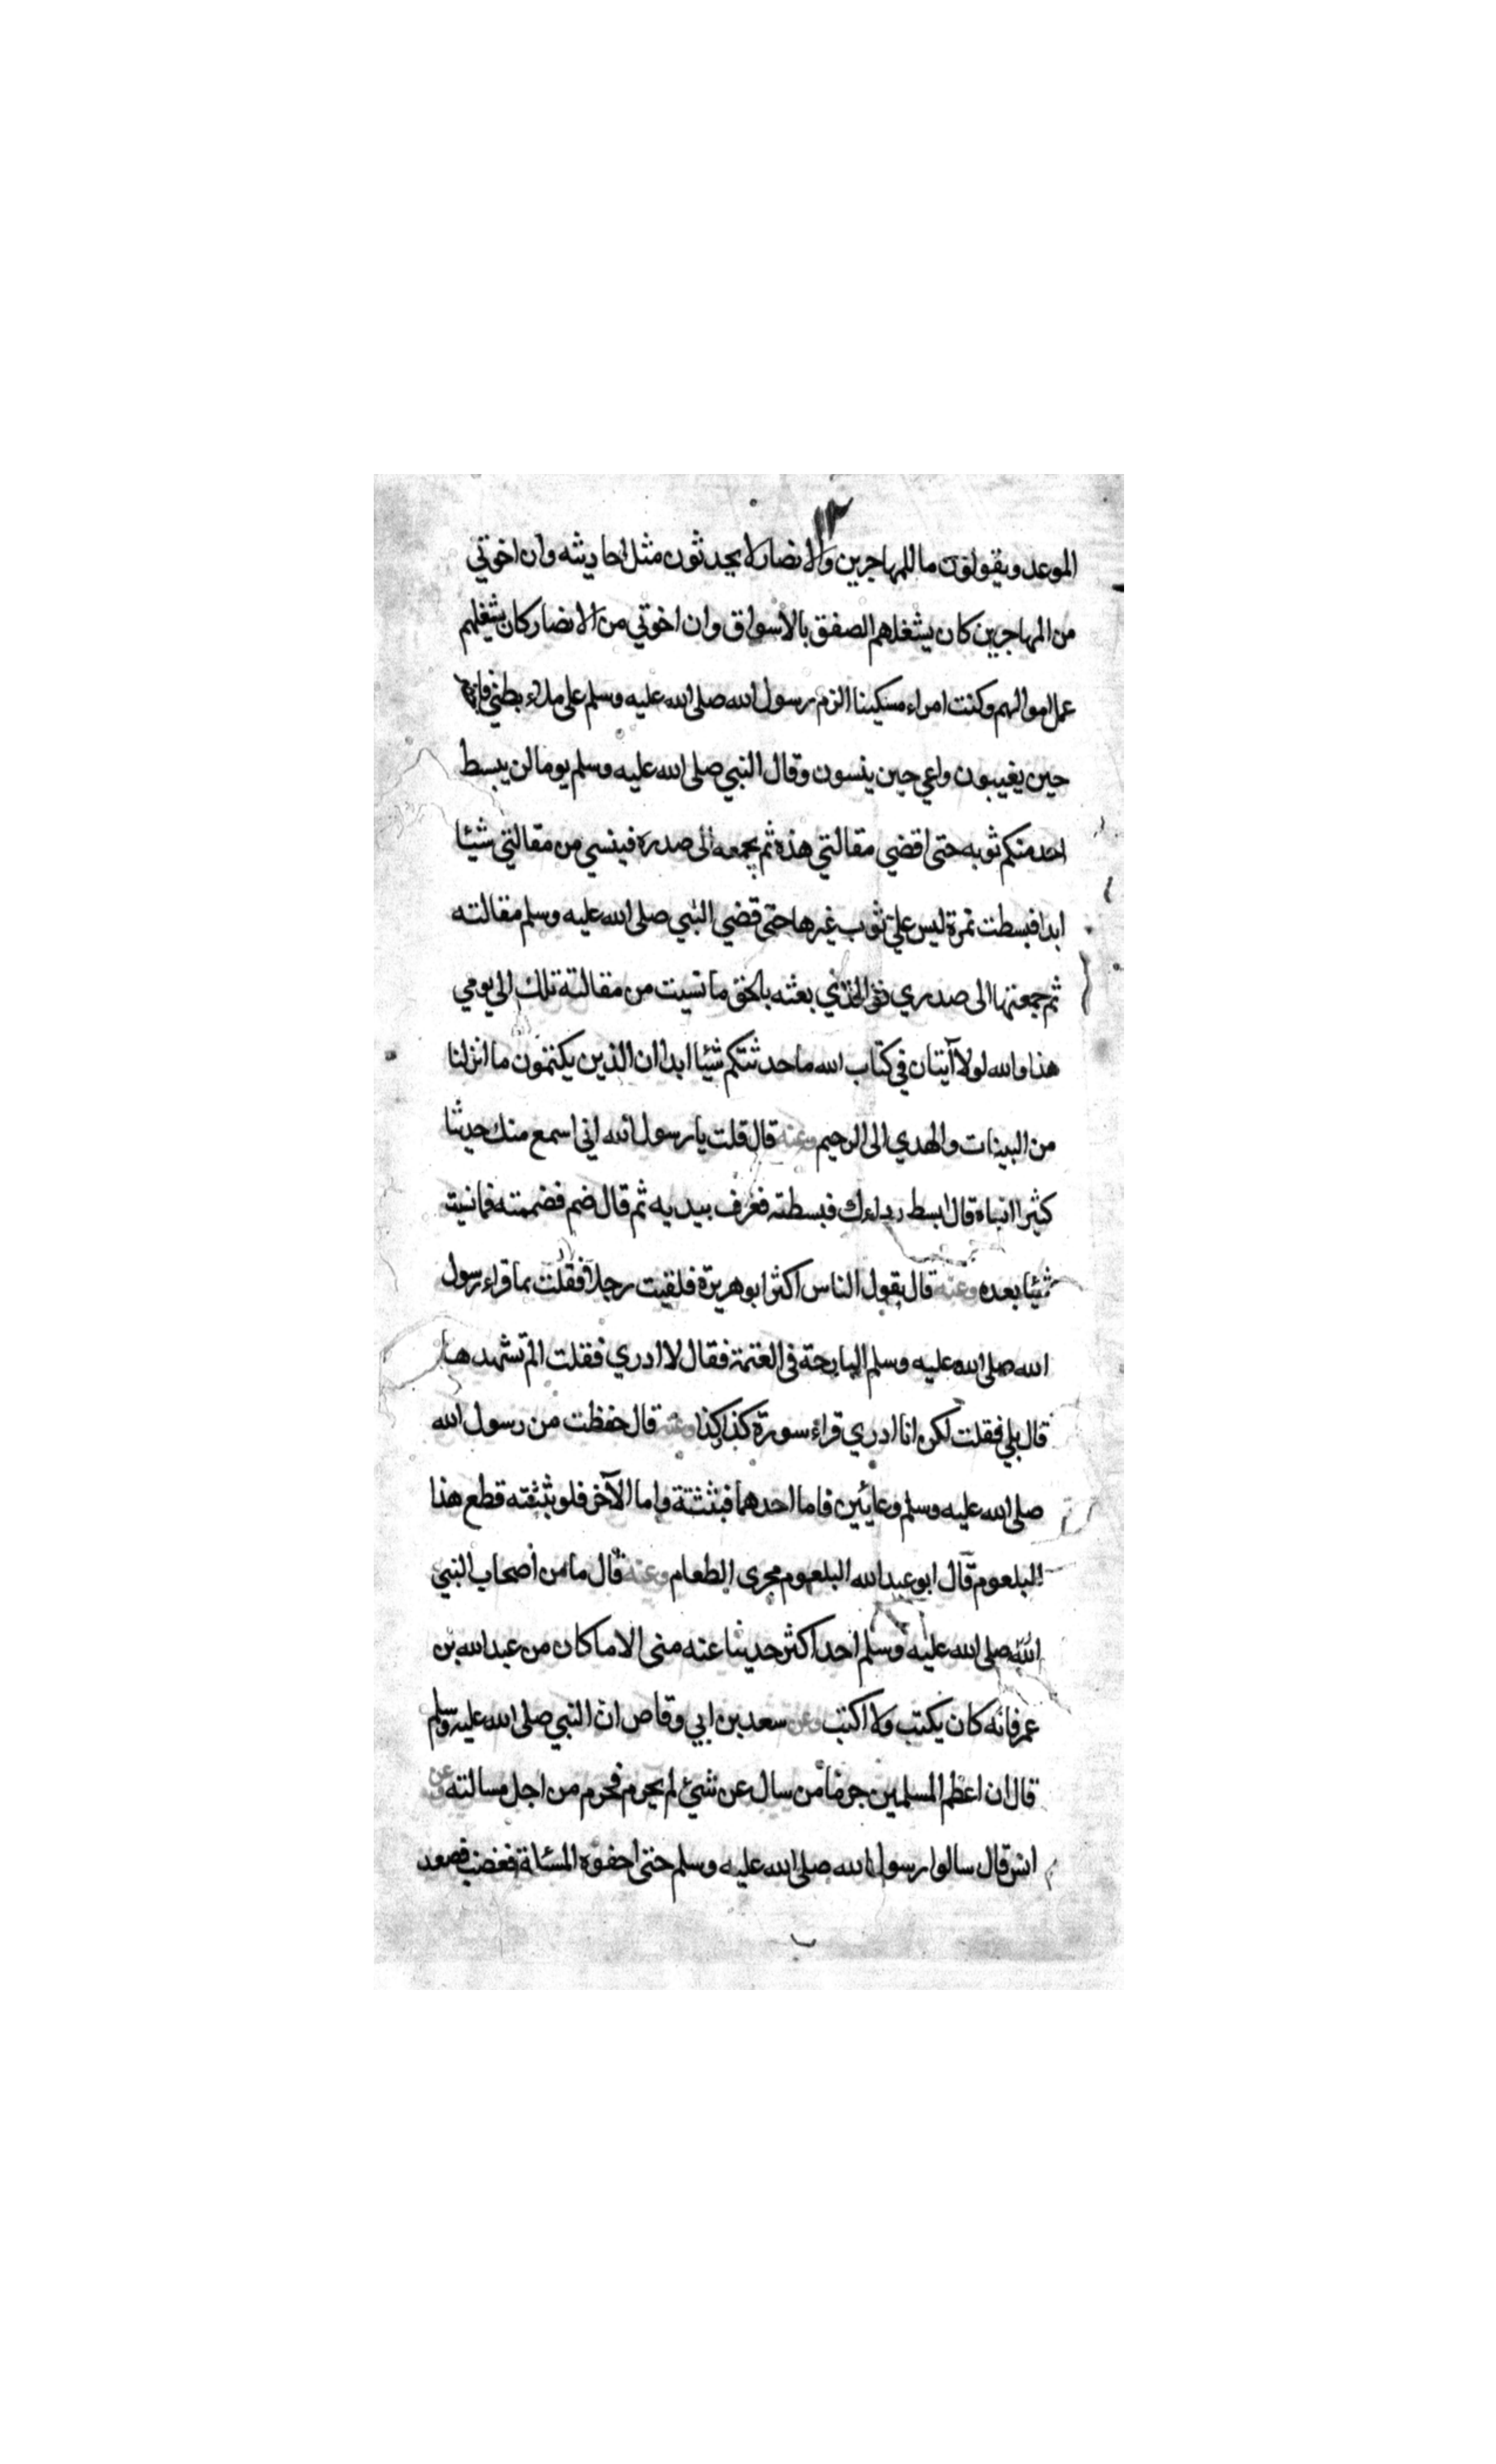 ١٣
الموعد ويقولون ما للمهاجرين والانصار لا يحدثون مثل احاديثه وان اخوتي
من المهاجرين كان يشغلهم الصفق بالاسواق وان اخوتي من الانصار كان يشغلهم
عمل اموالهم وكنت امراء مسكينا الزم رسول الله صلى الله عليه وسلم على ملاء بطني
حين يغيبون واعي حين ينسون وقال النبي صلى الله عليه وسلم يوما لن يبسط
احد منكم ثوبه حتى اقضي مقالتي هذه ثم يجمعه الى صدره فينسي من مقالتي شيئا
ابدا فبسطت نمرة ليس علي ثوب غيرها حتى قضي النبي صلى الله عليه وسلم مقالته
ثم جمعتها الى صدري فوالذي بعثه بالحق ما نسيت من مقالته تلك الى يومي
هذا والله لولا آيتان في كتاب الله ما حدثتكم شيئا ابدا ان الذين يكتمون ما انزلنا
من البينات والهدي الى الرحيم وعنه قال قلت يا رسول الله اني اسمع منك حديثا
كثيرا انساه قال ابسط رداءك فبسطته فغرف بيديه ثم قال ضم فضممته فما نسيت
شيئا بعده وعنه قال يقول الناس اكثر ابو هريرة فلقيت رجلا فقلت بما قراء رسول
الله صلى الله عليه وسلم البارحة في العتمة فقال لا ادري فقلت الم تشهدها
قال بلي فقلت لكن انا ادري قراء سورة كذا كذا وعنه قال حفظت من رسول الله
صلى الله عليه وسلم وعائين فاما احدهما فبثثتة واما الآخر فلو بثثته قطع هذا
البلعوم قال ابو عبد الله البلعوم مجرى الطعام وعنه قال ما من اصحاب النبي
الله صلى الله عليه وسلم احد اكثر حديثا عنه منى الا ما كان من عبد الله بن
عمر فانه كان يكتب ولا اكتب وعن سعد بن ابي وقاص ان النبي صلى الله عليه وسلم
قال ان اعظم المسلمين جرما من سال عن شئ لم يحرم فحرم من اجل مسالته وعن
انس قال سالوا رسول الله صلى الله عليه وسلم حتى احفوه المسئلة فغضب فصعد